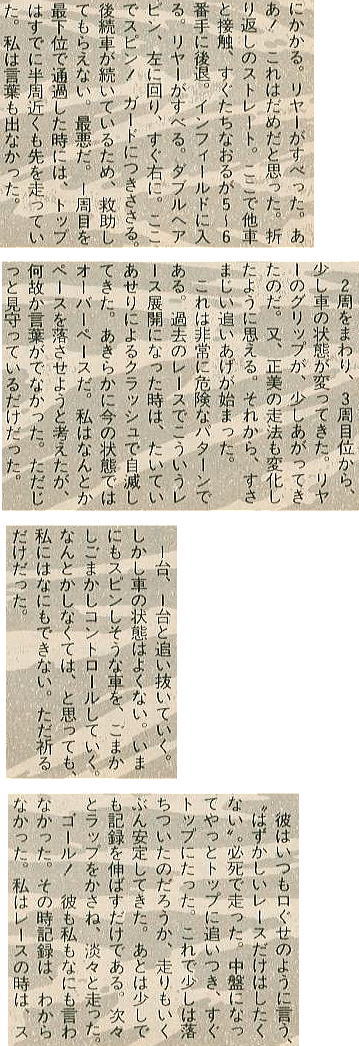 にかかる。リヤーがすべった。あ
あ！　これはだめだと思った。折
り返しのストレート。ここで他車
と接触、すぐたちなおるが5～6
番手に後退。インフィールドに入
る。リヤーがすべる。ダブルヘア
ピン、左に回り、すぐ右に。ここ
でスピン！　ガードにつきささる。
後続車が続いているため、救助し
てもらえない。最悪だ。一周目を
最下位で通過した時には、トップ
はすでに半周近くも先を走ってい
た。私は言葉も出なかった。
2周をまわり、3周目位から、
少し車の状態が変ってきた。リヤ
ーのグリップが、少しあがってき
たのだ。又、正美の走法も変化し
たように思える。それから、すさ
まじい追いあげが始まった。
これは非常に危険なパターンで
ある。過去のレースでこういうレ
ース展開になった時は、たいてい
あせりによるクラッシュで自滅し
てきた。あきらかに今の状態では
オーバーペースだ。私はなんとか
ペースを落させようと考えたが、
何故か言葉がでなかった。ただじ
っと見守っているだけだった。
一台、一台と追い抜いていく。
しかし車の状態はよくない。いま
にもスピンしそうな車を、ごまか
しごまかしコントロールしていく。
なんとかしなくては、と思っても、
私にはなにもできない。ただ祈る
だけだった。
彼はいつも口ぐせのように言う、
〝はずかしいレースだけはしたく
ない〟必死で走った。中盤になっ
てやっとトップに追いつき、すぐ
トップにたった。これで少しは落
ちついたのだろうか、走りもいく
ぶん安定してきた。あとは少しで
も記録を伸ばすだけである。次々
とラップをかさね、淡々と走った。
ゴール！　彼も私もなにも言わ
なかった。その時記録は、わから
なかった。私はレースの時は、ス